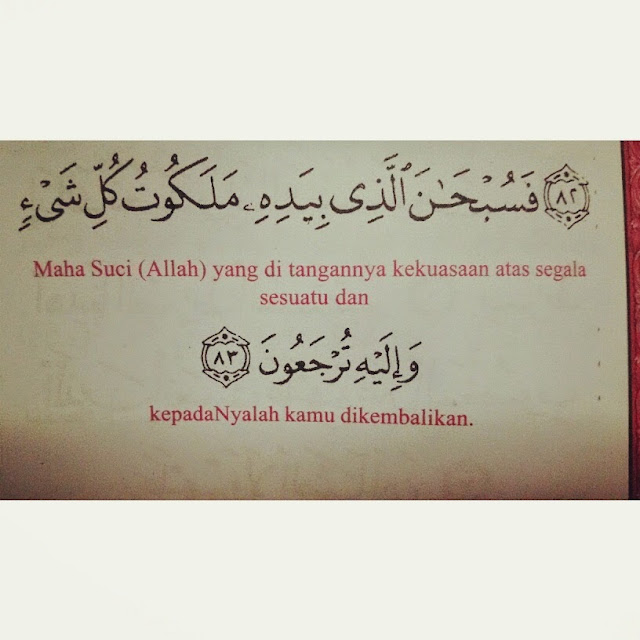 ٨٢ فَسُبْحَـٰنَ ٱلَّذِى بِيَدِهِۦ مَلَكُوتُ كُلِّ شَىْءٍ
Maha Suci (Allah) yang di tangannya kekuasaan atas segala
sesuatu dan
وَإِلَيْهِ تُرْجَعُونَ ٨٣
kepadaNyalah kamu dikembalikan.